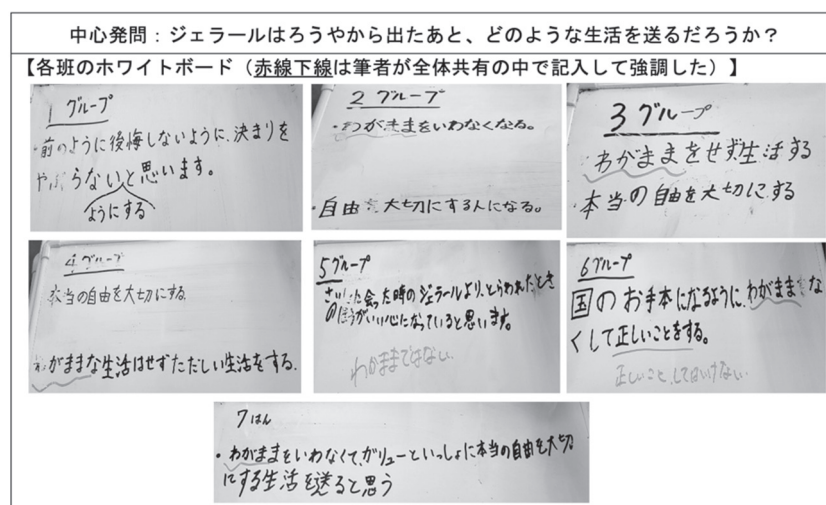 中心発問：ジェラールはろうやから出たあと、どのような生活を送るだろうか？
【各班のホワイトボード（赤線下線は筆者が全体共有の中で記入して強調した）】
1 グループ
・前のように後悔しないように、決まりを
やぶらないと思います。
ようにする
2 グループ
・わがままをいわなくなる。
・自由を大切にする人になる。
3 グループ
わがままをせず生活する
・本当の自由を大切にする
4 グループ
本当の自由を大切にする
わがままな生活はせずただしい生活をする.
5グループ
さいしょに会った時のジェラールより、とらわれたとき
のほうがいい心になっていると思います。
わがままではない
6グループ
国のお手本になるように、わがままをな
くして正しいことをする。
正しいこと、してはいけない
7はん
・わがままをいわなくて、ガリューといっしょに本当の自由を大切
にする生活を送ると思う